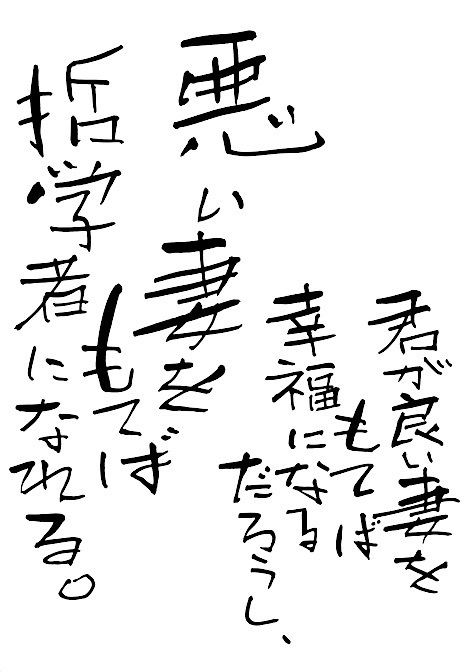 君が良い妻を
もてば
幸福になる
だろうし、
悪い妻を
もてば
哲学者になれる。